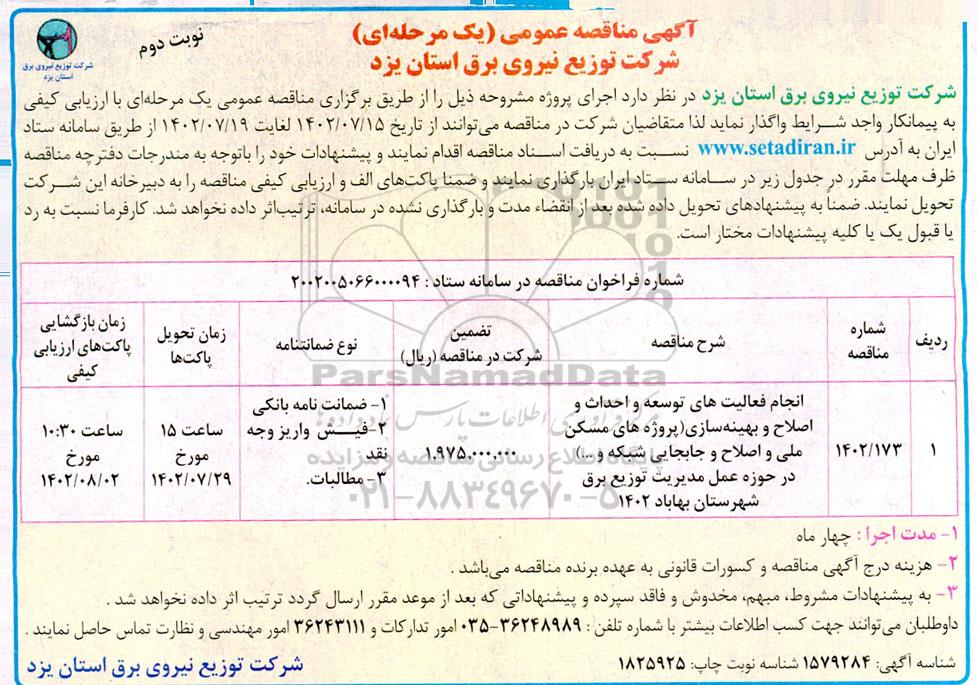 آگهی مناقصه عمومی (یک مرحله‌ای)
شرکت توزیع نیروی برق استان یزد
نوبت دوم
شرکت توزیع نیروی برق
استان یزد
شرکت توزیع نیروی برق استان یزد در نظر دارد اجرای پروژه مشروحه ذیل را از طریق برگزاری مناقصه عمومی یک مرحله‌ای با ارزیابی کیفی
به پیمانکار واجد شرایط واگذار نماید لذا متقاضیان شرکت در مناقصه می‌توانند از تاریخ ۱۴۰۲/۰۷/۱۵ لغایت ۱۴۰۲/۰۷/۱۹ از طریق سامانه ستاد
ایران به آدرس www.setadiran.ir نسبت به دریافت اسناد مناقصه اقدام نمایند و پیشنهادات خود را باتوجه به مندرجات دفترچه مناقصه
ظرف مهلت مقرر در جدول زیر در سامانه ستاد ایران بارگذاری نمایند و ضمنا پاکت‌های الف و ارزیابی کیفی مناقصه را به دبیرخانه این شرکت
تحویل نمایند. ضمناً به پیشنهادهای تحویل داده شده بعد از انقضاء مدت و بارگذاری نشده در سامانه، ترتیب‌اثر داده نخواهد شد. کارفرما نسبت به رد
یا قبول یک یا کلیه پیشنهادات مختار است.
شماره فراخوان مناقصه در سامانه ستاد : ۲۰۰۲۰۰۵۰۶۶۰۰۰۰۹۴
ردیف
شماره
مناقصه
شرح مناقصه
تضمین
شرکت در مناقصه (ریال)
نوع ضمانتنامه
زمان تحویل
پاکت‌ها
زمان بازگشایی
پاکت‌های ارزیابی
کیفی
۱
۱۴۰۲/۱۷۳
انجام فعالیت های توسعه و احداث و
اصلاح و بهینه‌سازی(پروژه های مسکن
ملی و اصلاح و جابجایی شبکه و ...)
در حوزه عمل مدیریت توزیع برق
شهرستان بهاباد ۱۴۰۲
۱.۹۷۵.۰۰۰.۰۰۰
۱- ضمانت نامه بانکی
۲-فیش واریز وجه
نقد
۳- مطالبات.
ساعت ۱۵
مورخ
۱۴۰۲/۰۷/۲۹
ساعت ۱۰:۳۰
مورخ
۱۴۰۲/۰۸/۰۲
ParsNamadData
پایگاه اطلاع رسانی مناقصه و مزایده
۰۲۱-۸۸۳۴۹۶۷۰-۵
۱- مدت اجرا : چهار ماه
۲- هزینه درج آگهی مناقصه و کسورات قانونی به عهده برنده مناقصه می‌باشد .
۳- به پیشنهادات مشروط، مبهم، مخدوش و فاقد سپرده و پیشنهاداتی که بعد از موعد مقرر ارسال گردد ترتیب اثر داده نخواهد شد .
داوطلبان می‌توانند جهت کسب اطلاعات بیشتر با شماره تلفن : ۳۶۲۴۸۹۸۹-۰۳۵ امور تدارکات و ۳۶۲۴۳۱۱۱ امور مهندسی و نظارت تماس حاصل نمایند .
شناسه آگهی: ۱۵۷۹۲۸۴ شناسه نوبت چاپ: ۱۸۲۵۹۲۵
شرکت توزیع نیروی برق استان یزد